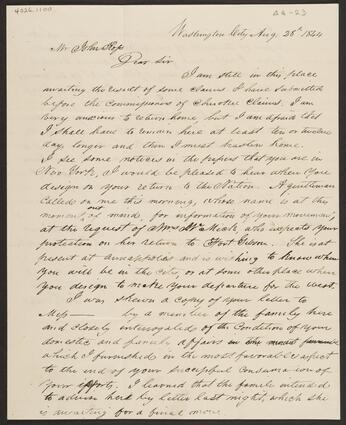 4026.1100
AG-23
Washington City Aug. 28th 1844
Mr John Ross
Dear Sir
I am still in this place
awaiting the result of some claims I have submitted
before the Commissioners of Cherokee Claims, I am
very anxious to return home but I am afraid that
I shall have to remain here at least ten or twelve
days longer and then I must hasten home.
I see some notices in the papers that you are in
New York, I would be pleased to hear when you
design on your return to the Nation. A gentleman
called on me this morning, whose name is at this
moment, out of mind, for information of your movements,
at the request of Mrs who expects your
protection on her return to Fort Gibson. She is at
present at Annapolis and is wishing to know when
you will be in the City, or at some other place where
you design to make your departure for the West.
I was shewn a copy of your letter to
Miss by a member of the family here
and closely interrogated of the Condition of your
domestic and family affairs
which I furnished in the most favorable aspect
to the end of your successful consummation of
your efforts. I learned that the family intended
to advise her by letter last night, which she
is awaiting for a final